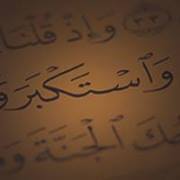 ٣٣ وَإِذْ قُلْنَا
وَٱسْتَكْبَرَ وَ
ٱلْجَنَّةَ